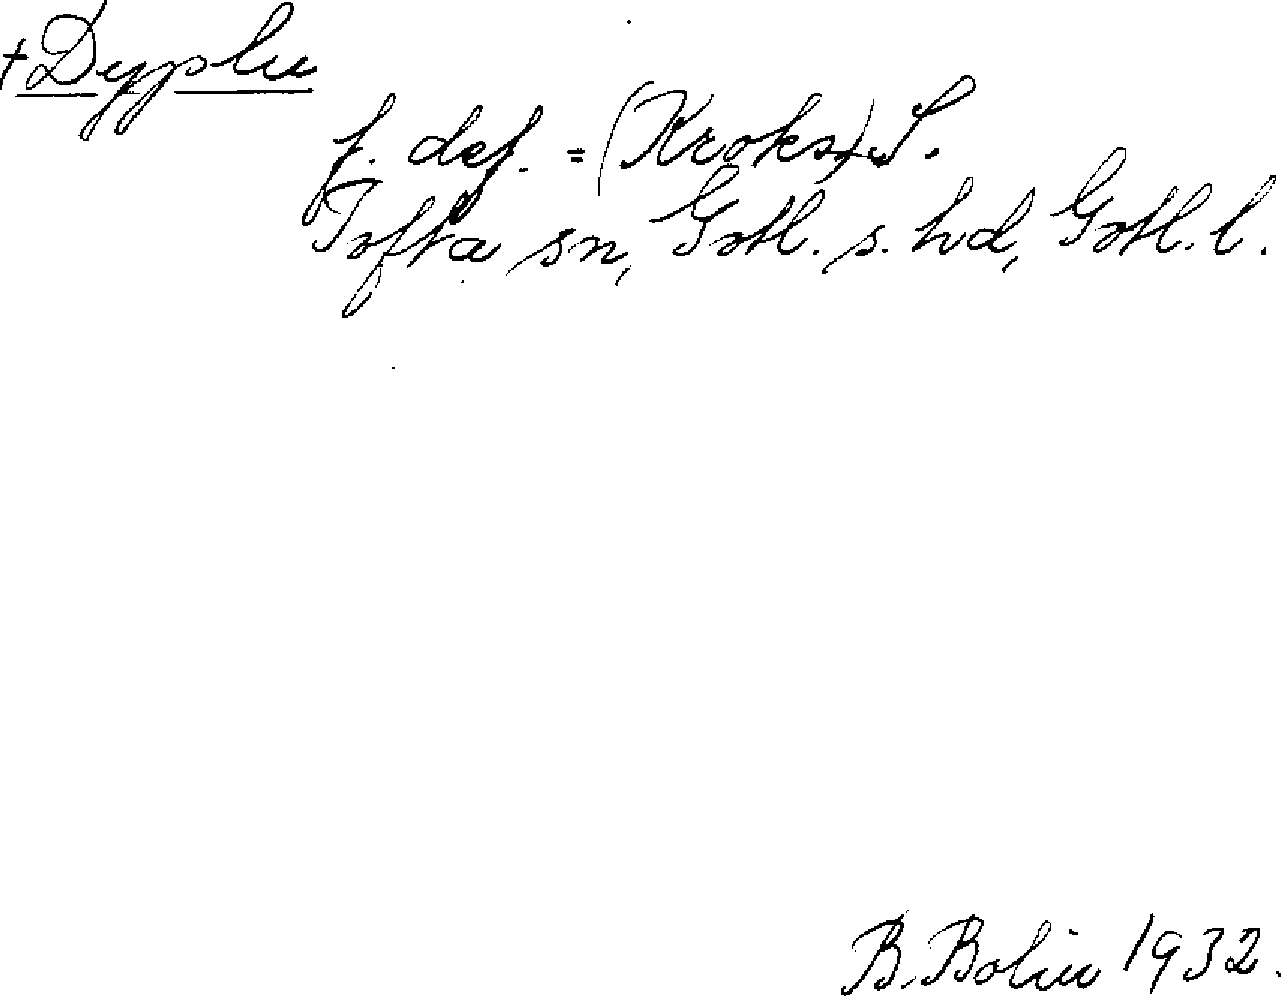 +Dypplu
f. def. = (Kroks)+S.
Tofta sn, Gotl. s. hd, Gotl. l.
B. Bolin 1932.